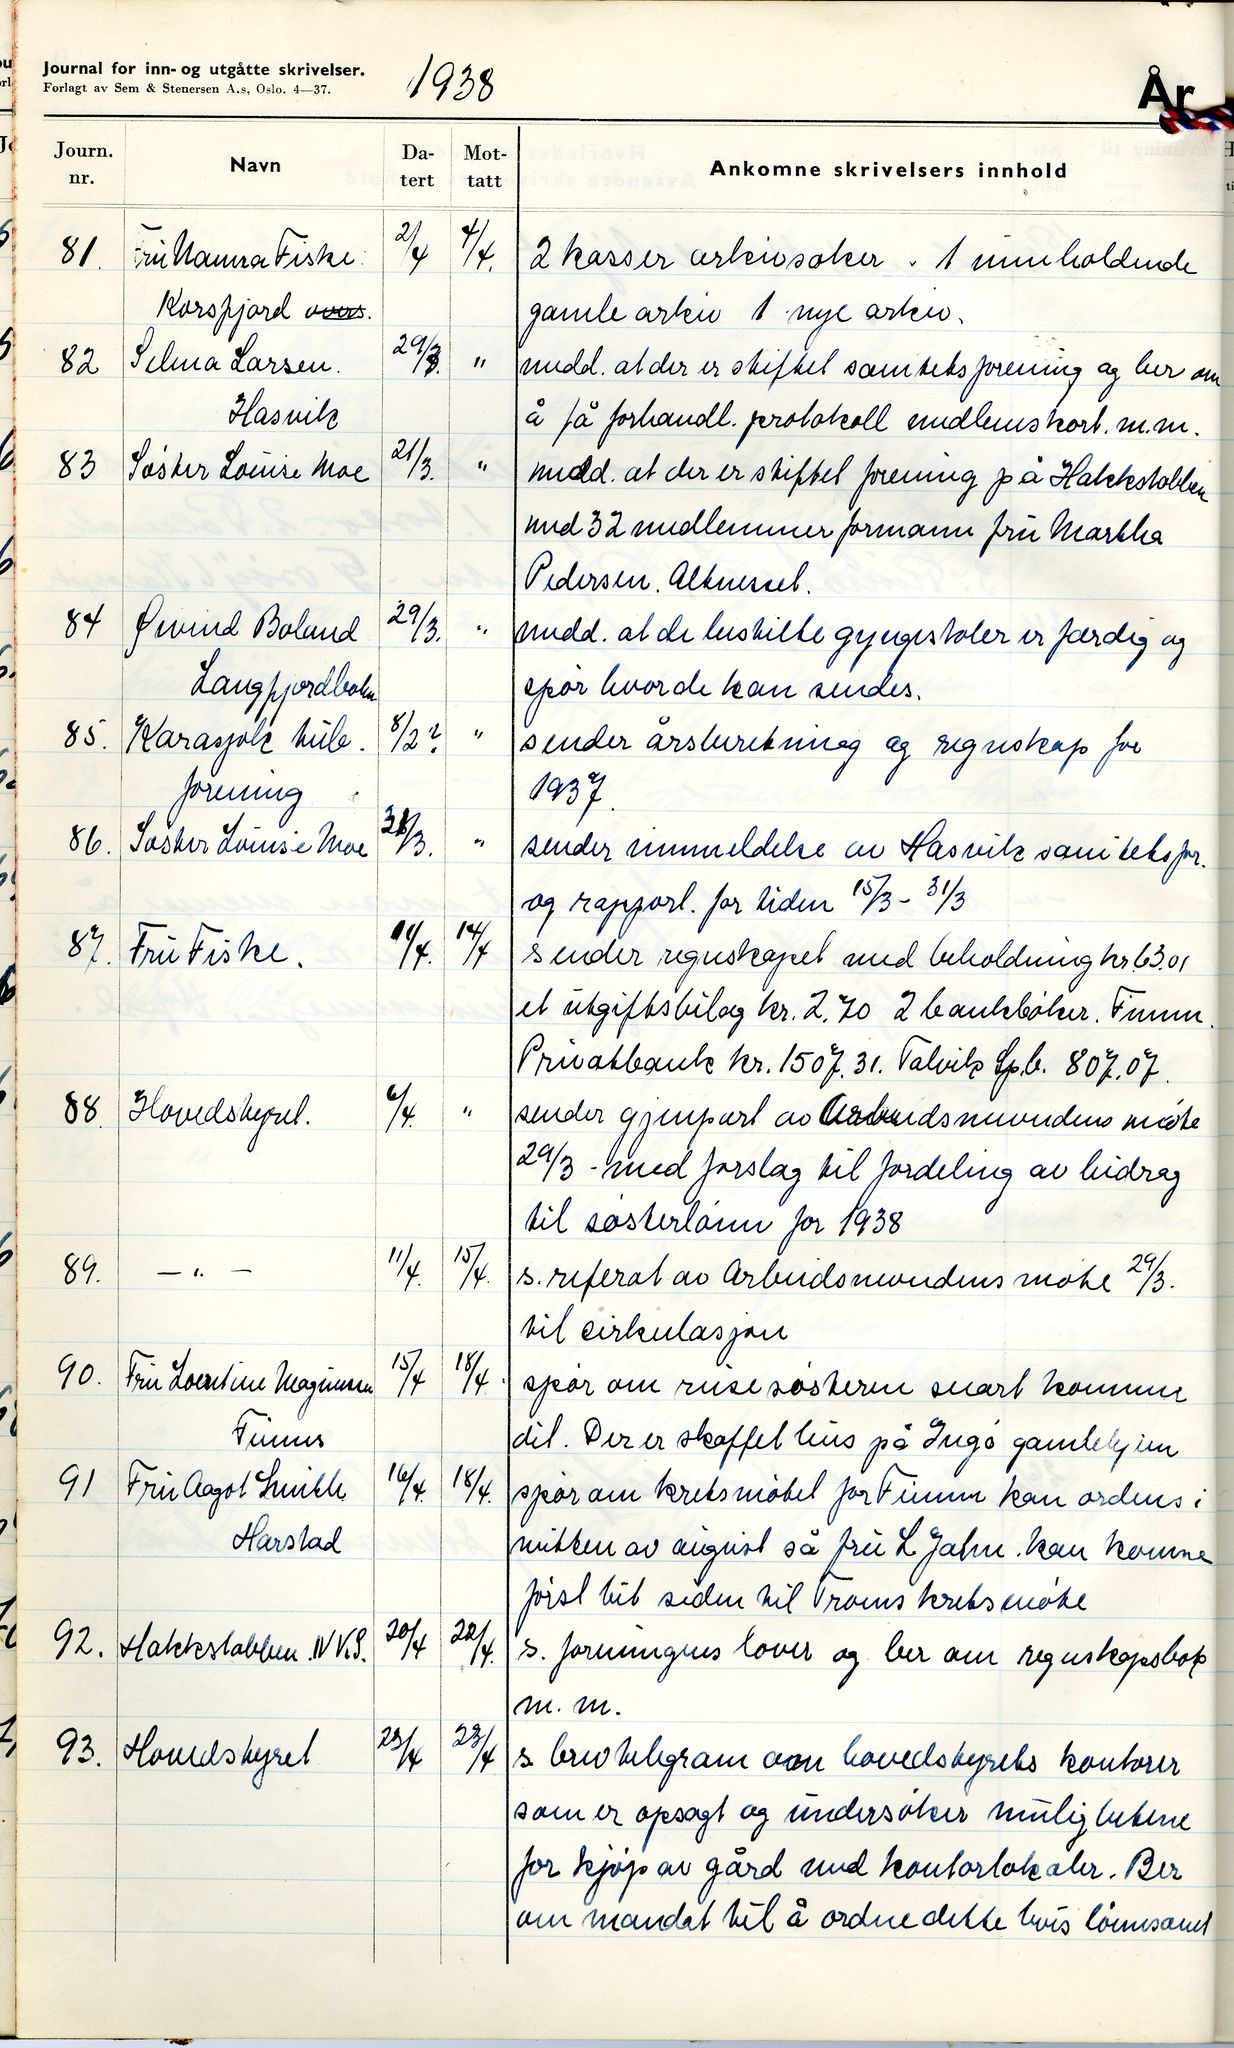 Journal for inn- og utgåtte skrivelser.
Forlagt av Sem & Stenersen A.s, Oslo. 4—37.
1938
År
Journ. nr. Navn Datert Mottatt Ankomne skrivelsers innhold
81. Fru Nanna Fiske. 2/4 4/4. 2 kasser arkivsaker. 1 inneholdende
Korsfjord gamle arkiv 1 nye arkiv.
82 Selma Larsen. 29/3. " medd. at der er stiftet sanitetsforening og ber om
Hasvik å få forhandl. protokoll medlemskort. m.m.
83 Søster Louise Moe 21/3. " medd. at der er stiftet forening på Hakkstabben
med 32 medlemmer formann fru Martha
Pedersen. Altnesset.
84 Øivind Boland 29/3. " medd. at de bestilte gyngestoler er færdig og
Langfjordbotn spør hvor de kan sendes.
85. Karasjok tub. 8/2? " sender årsberetning og regnskap for
forening 1937.
86. Søster Louise Moe 31/3. " sender innmeldelse av Hasvik sanitetsfor.
og rapport. for tiden 15/3 - 31/3
87. Fru Fiske. 11/4. 14/4 sender regnskapet med beholdning kr. 63.01
et utgiftsbilag kr. 2,70 2 bankbøker. Finnm.
Privatbank kr. 1507.31. Talvik Sp.b. 807.07.
88. Hovedstyret. 6/4. " sender gjenpart av Arbeidsnevndens møte
29/3 - med forslag til fordeling av bidrag
til søsterlønn for 1938
89. — " — 11/4. 15/4. s. referat av Arbeidsnevndens møte 29/3.
til cirkulasjon
90. Fru Leontine Magnussen 15/4 18/4. spør om reisesøsteren snart kommer
dit. Der er skaffet hus på Ingø gamlehjem
91 Fru Aagot Smith 16/4. 18/4. spør om kretsmøtet for Finnm kan ordens i
Harstad mitten av august så fru L Jahn. kan komme
først hit siden til Troms kretsmøte
92. Hakkstabben N.K.S. 20/4 22/4. s. foreningens lover og ber om regnskapsbok
m. m.
93. Hovedstyret 23/4 23/4 s brevtelegram om hovedstyrets kontorer
som er opsagt og undersøker mulighetene
for kjøp av gård med kontorlokaler. Ber
om mandat til å ordne dette hvis lønnsomt